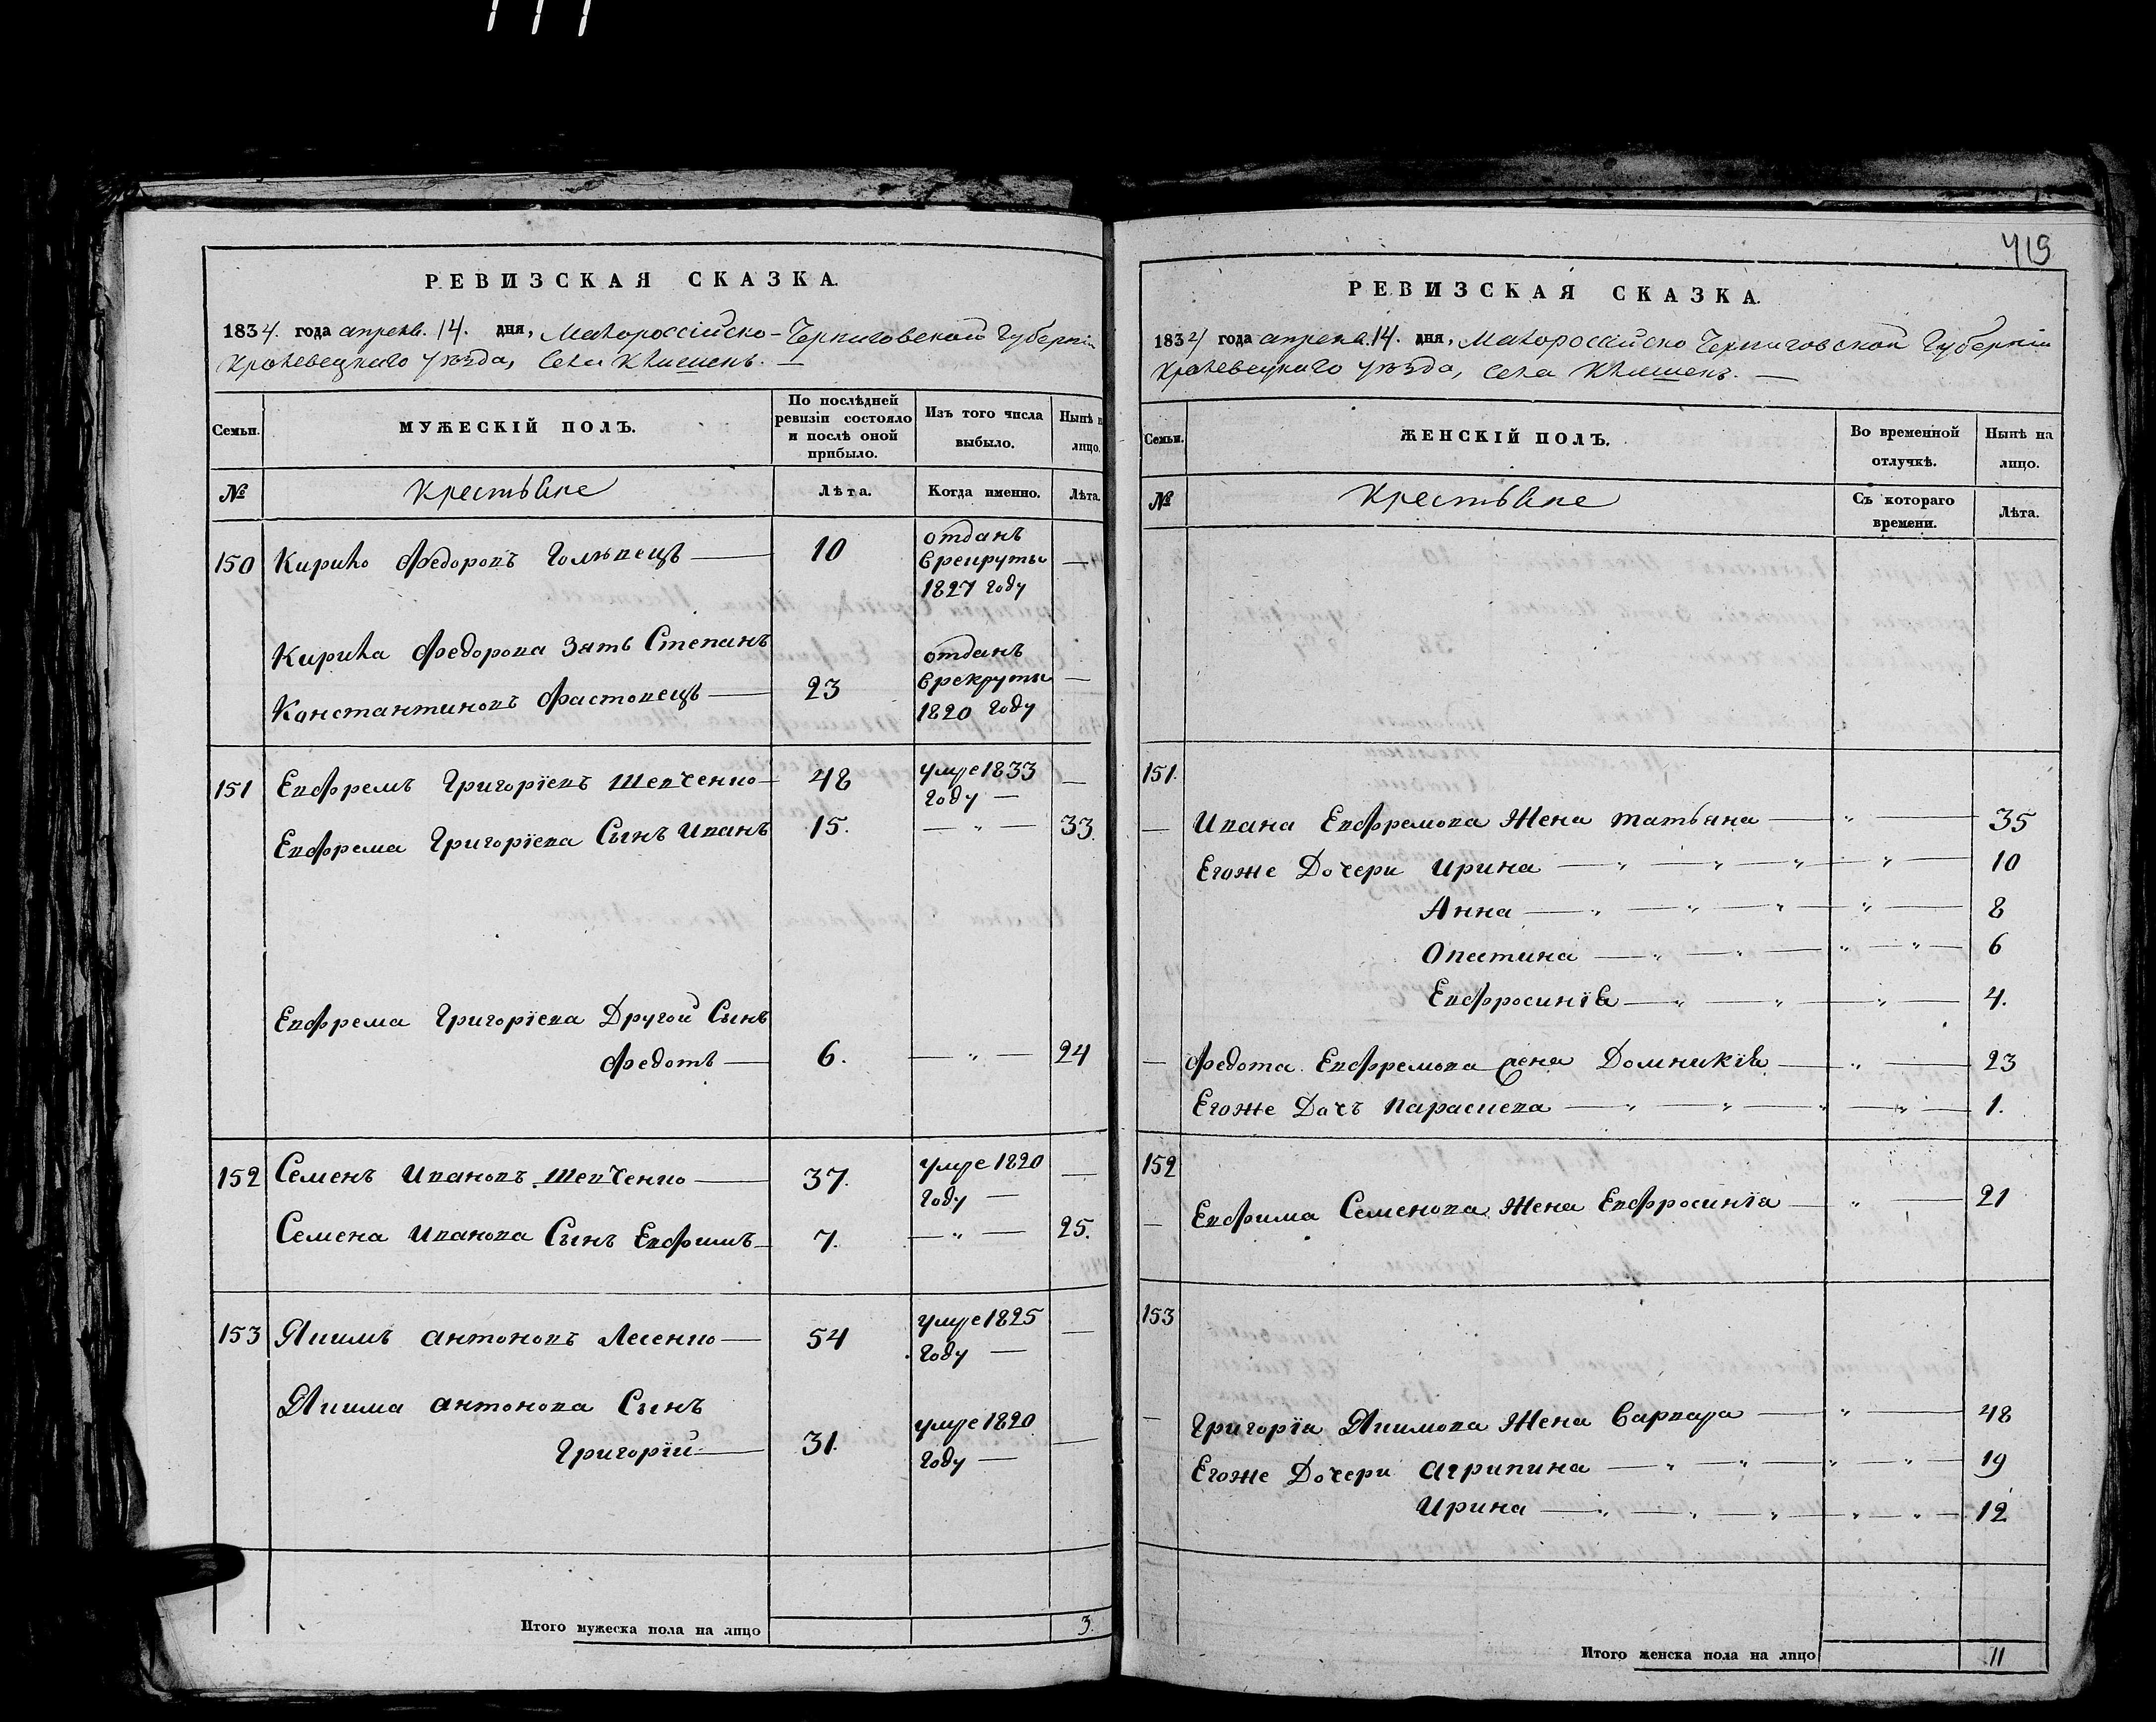 РЕВИЗСКАЯ СКАЗКА.
1834. года апреля. 14. дня, Малороссійско-Черниговской Губерніи
Кролевецкаго уѣзда, Села Клишекъ. —
Семьи.
МУЖЕСКІЙ ПОЛЪ.
По послѣдней ревизіи состояло и послѣ оной прибыло.
Изъ того числа выбыло.
Нынѣ н лицо.
№
Крестьяне
Лѣта.
Когда именно.
Лѣта.
150 Кирило Федоровъ 10 отданъ
в рекруты —
1827 году
Кирила Федорова Зять Степанъ отданъ
Константиновъ Фастовецъ — 23 в рекруты —
1820 году
151 Евфремъ Григоріевъ Шевченко — 48 умре 1833 —
году —
Евфрема Григоріева Сынъ Иванъ 15. — " — 33.
Евфрема Григоріева Другой Сынъ
Федотъ — 6. — " — 24
152 Семенъ Ивановъ Шевченко — 37. умре 1820 —
году —
Семена Иванова Сынъ Евфимъ — 7. — " — 25.
153 Якимъ Антоновъ Лесенко — 54 умре 1825 —
году —
Якима Антонова Сынъ
Григорій — 31. умре 1820 —
году —
Итого мужеска пола на лицо 3.
419
РЕВИЗСКАЯ СКАЗКА.
1834 года апреля. 14. дня, Малороссійско Черниговской Губерніи
Кролевецкаго уѣзда, Села Клишекъ. —
Семьи.
ЖЕНСКІЙ ПОЛЪ.
Во временной отлучкѣ.
Нынѣ на лицо.
№
Крестьяне
Съ котораго времени.
Лѣта.
151.
— Ивана Евфремова Жена Татьяна — " — 35
Егоже Дочери Ирина — " — " — " — " — 10
Анна — " — " — " — " — 8
Овстина — " — " — " — " — 6
Евфросинія — " — " — " — 4.
— Федота Евфремова жена Домникія — " — 23
Егоже Дочъ Параскева — " — " — " — " — 1.
152
— Евфима Семенова Жена Евфросинія — " — 21
153
— Григорія Якимова Жена Варвара — " — 48
Егоже Дочери Агрипина — " — " — " — " — 19
Ирина — " — " — " — " — " — 12
Итого женска пола на лицо 11